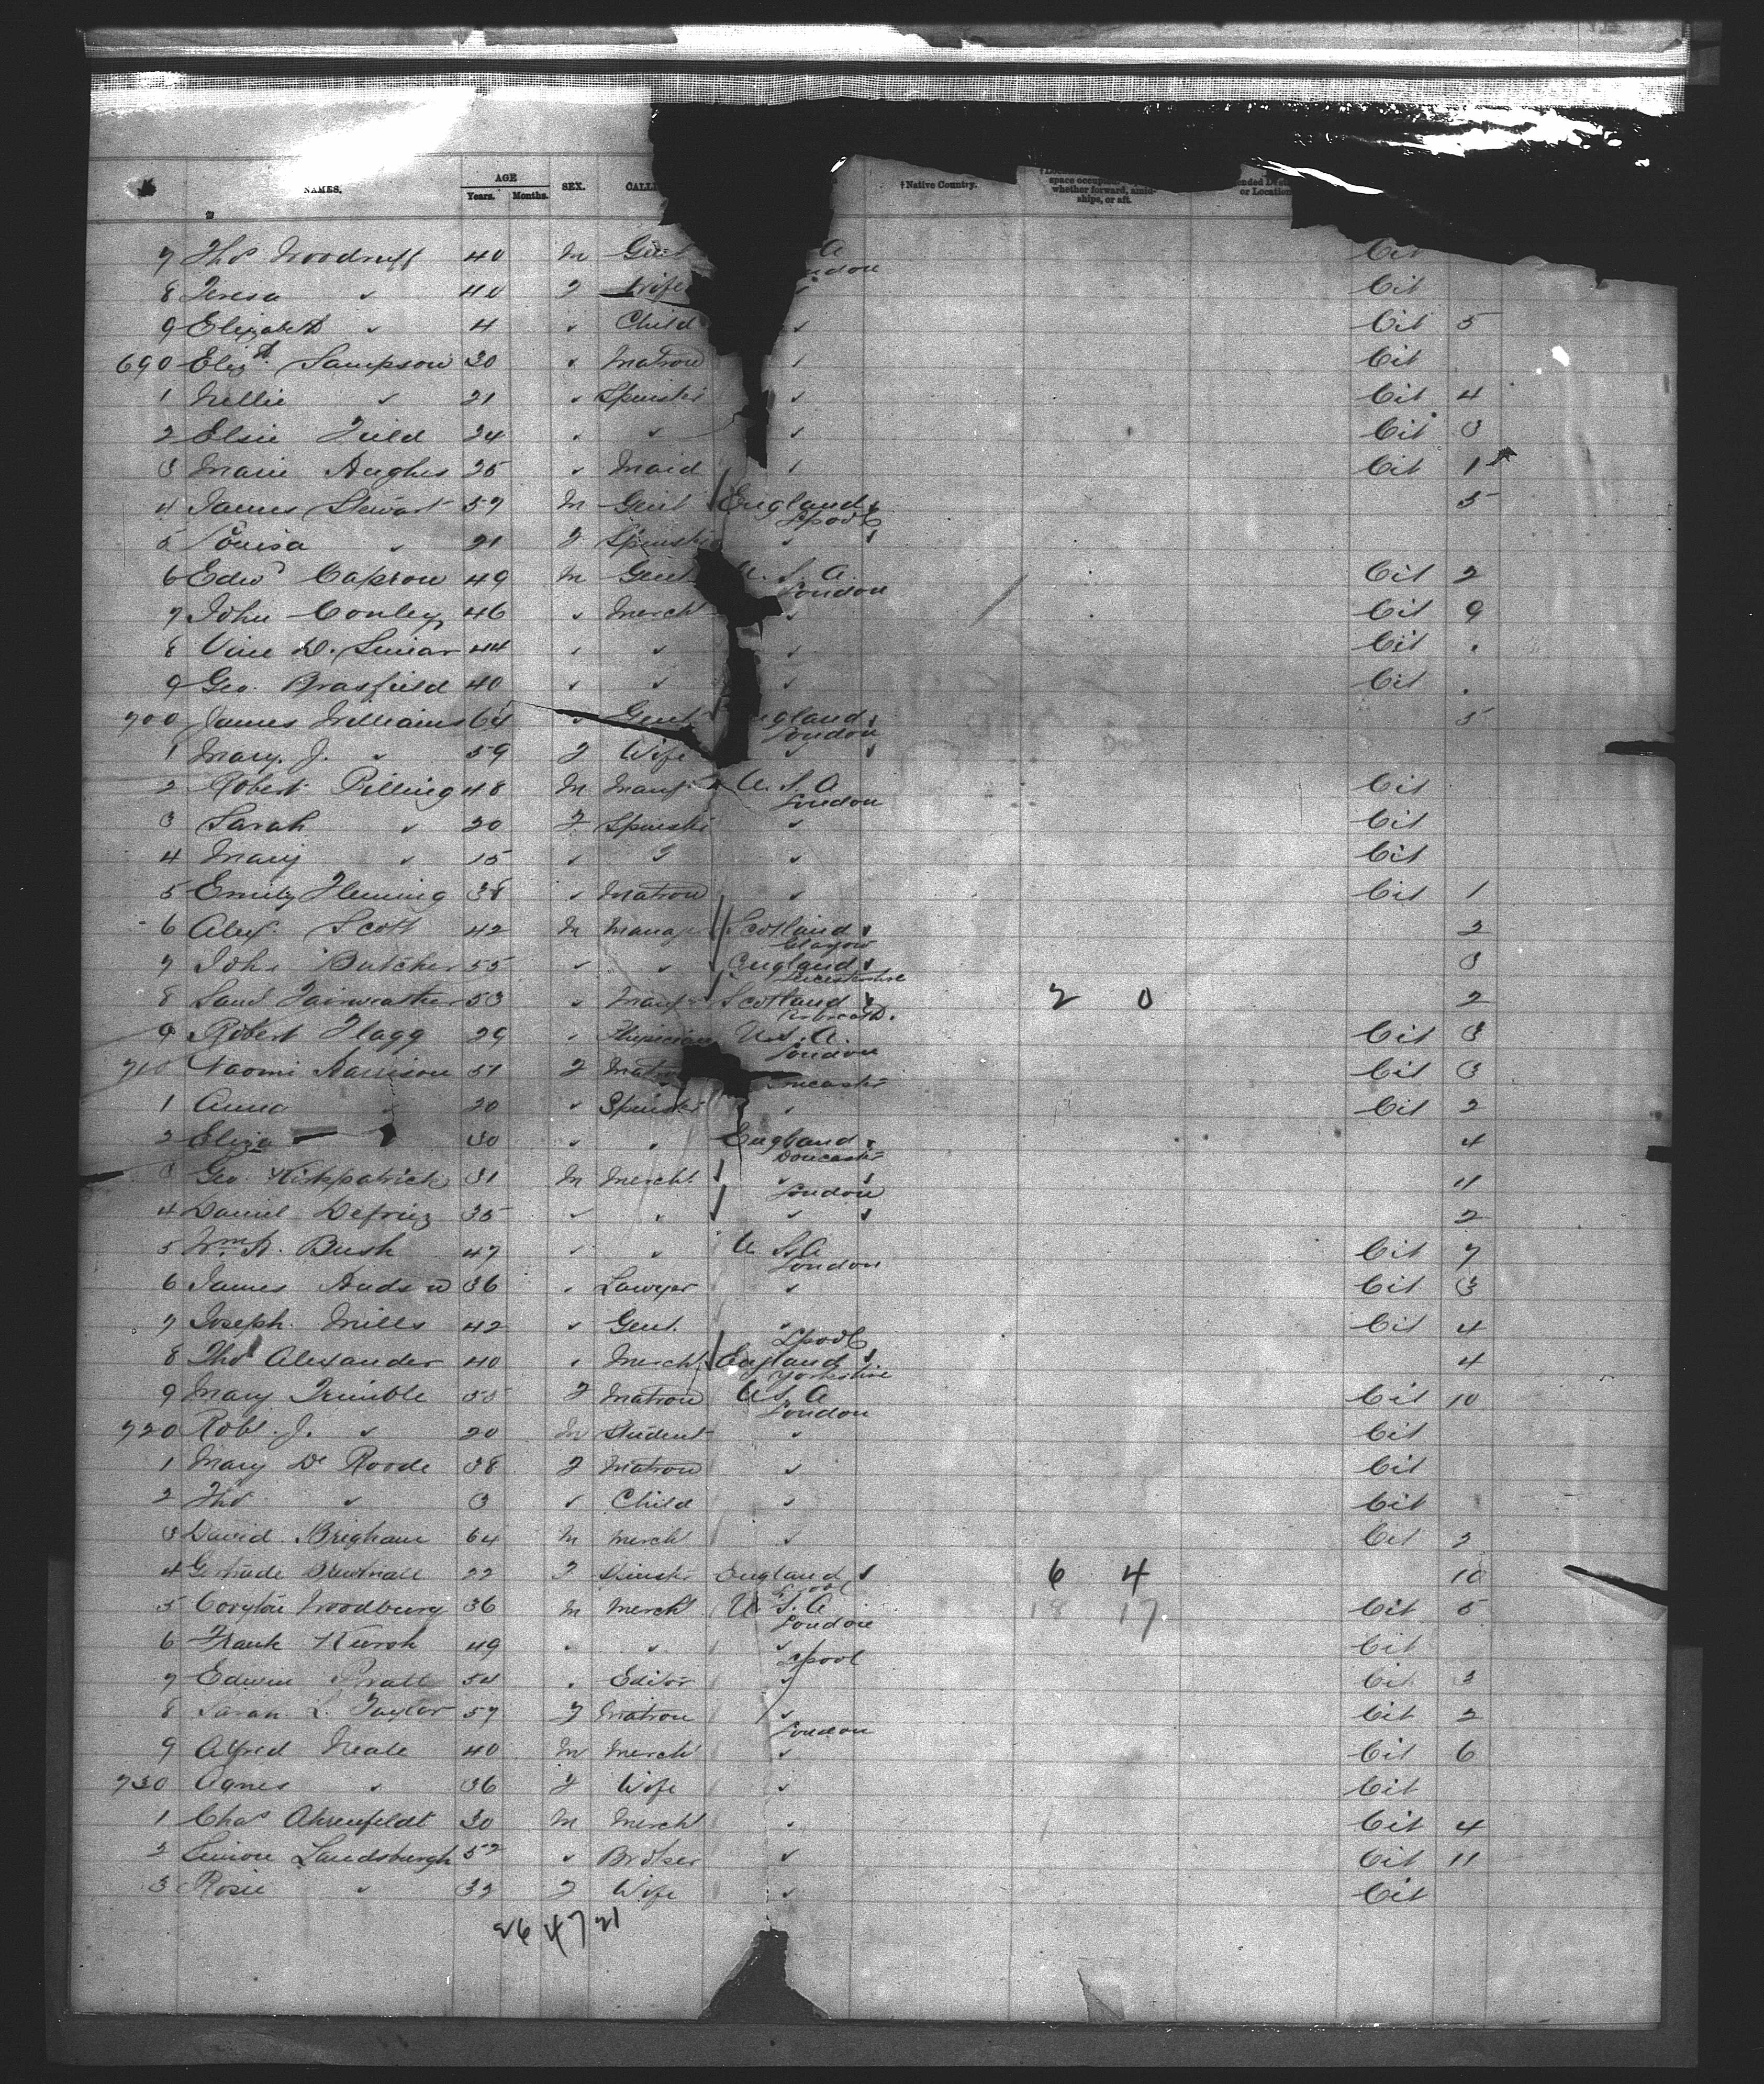 NAMES. AGE Years. Months. SEX. CALLI †Native Country. space occupied whether forward, amidships, or aft. ended Des or Location
7 Thos Woodruff 40 M Gent A Cit
ndon
8 Teresa " 40 F Wife " Cit
9 Elizabeth " 4 " Child " Cit 5
690 Elizth Sampson 30 " Matron " Cit
1 Nellie " 21 " Spinster " Cit 4
2 Elsie Field 24 " " " Cit 3
3 Marie Hughes 25 " Maid " Cit 1
4 James Stewart 57 M Gent England 5
Lpool
5 Louisa " 21 F Spinster "
6 Edwd Capron 49 M Gent U. S. A. Cit 2
London
7 John Conley 46 " Mercht " Cit 9
8 D. 44 " " " Cit "
9 Geo. Brasfield 40 " " " Cit "
700 James Williams 64 " Gent England 5
London
1 Mary. J. " 59 F Wife "
2 Robert Pilling 48 M Manf U. S. A Cit
London
3 Sarah " 20 F Spinster " Cit
4 Mary " 15 " " " Cit
5 Emily Fleming 38 " Matron " Cit 1
6 Alex. Scott 42 M Manag Scotland 2
Glasgow
7 John Butcher 55 " " England 3
Leicestershire
8 Saml Fairweather 53 " Manf Scotland 2 0 2
Arbroath.
9 Robert Flagg 29 " Physician U. S. A. Cit 3
London
710 Naomi Harrison 51 F Matron Doncaster Cit 3
1 Anna " 20 " Spinster " Cit 2
2 Eliza " 30 " " England 4
Doncaster
3 Geo Kirkpatrick 31 M Mercht " 4
London
4 Daniel Defriez 35 " " " 2
5 Wm H. Bush 47 " " U S. A Cit 7
London
6 James Hudson 36 " Lawyer " Cit 3
7 Joseph Mills 42 " Gent. " Cit 4
Lpool
8 Thos Alexander 40 " Mercht England 4
Yorkshire
9 Mary Trimble 55 F Matron U. S. A Cit 10
London
720 Robt. J. " 20 M Student " Cit
1 Mary De Roode 38 F Matron " Cit
2 Thos " 3 " Child " Cit
3 David Brigham 64 M Mercht " Cit 2
4 Gertrude 22 F Spinster England 6 4 10
Lpool
5 Coryton Woodbury 36 M Mercht U. S. A 18 17 Cit 5
London
6 Frank 49 " " " Cit
Lpool
7 Edwin Pratt 54 " Editor " Cit 3
8 Sarah L. Taylor 57 F Matron " Cit 2
London
9 Alfred Neale 40 M Mercht " Cit 6
730 Agnes " 36 F Wife " Cit
1 Chas Ahrenfeldt 30 M Mercht " Cit 4
2 Simon Landsburgh 52 " Broker " Cit 11
3 Rosie " 32 F Wife " Cit
26 47 21